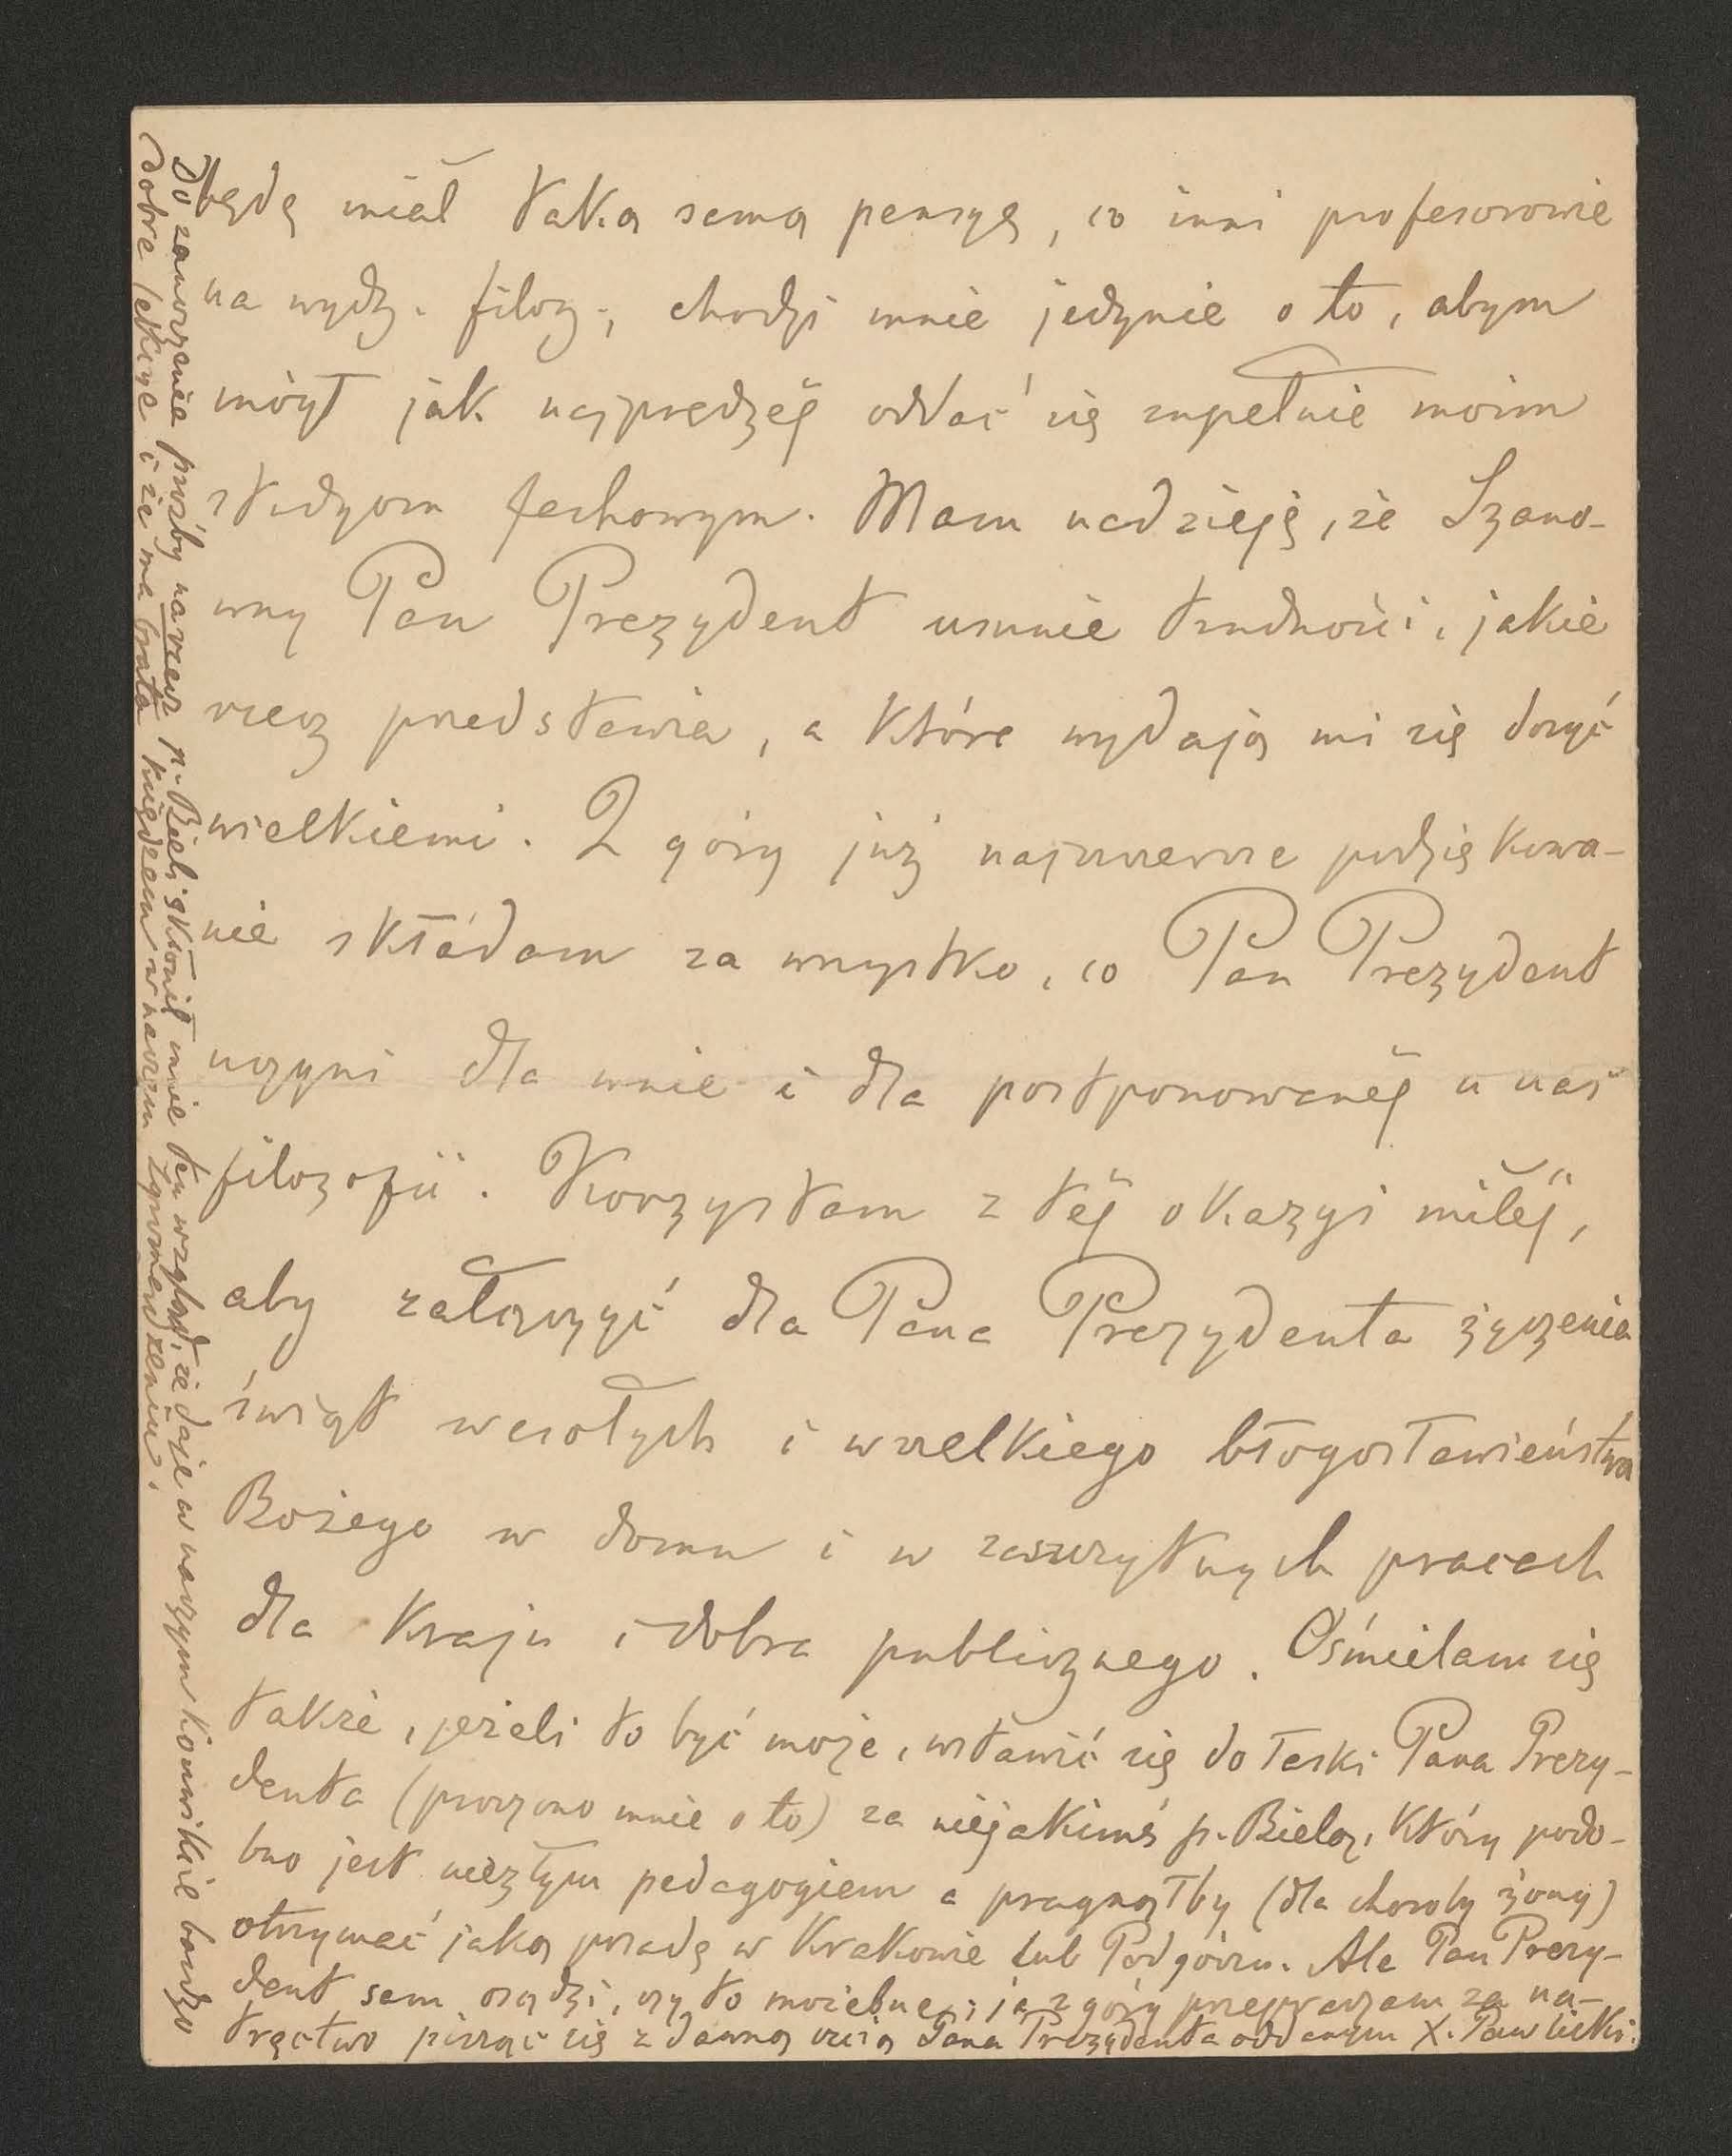 będę miał taką samą pensyę, co inni profesorowie
na wydz. filoz., chodzi mnie jedynie o to, abym
mógł jak najprędzéj oddać się zupełnie moim
studyom fachowym. Mam nadzieję, że Szano-
wny Pan Prezydent usunie trudności, jakie
rzecz przedstawia, a które wydają mi się dosyć
wielkiemi. Z góry już najszczersze podziękowa-
nie składam za wszystko, co Pan Prezydent
uczyni dla mnie i dla postponowanéj u nas
filozofii. Korzystam z téj okazyi miłéj,
aby załączyć dla Pana Prezydenta życzenia
świąt wesołych i wszelkiego błogosławieństwa
Bożego w domu i w zaszczytnych pracach
dla kraju i dobra publicznego. Ośmielam się
także, jeżeli to być może, wstawić się do łaski Pana Prezy-
denta (proszono mnie o to) za niejakimś p. Bielą, który podo-
bno jest niezłym pedagogiem a pragnąłby (dla choroby żony)
otrzymać jaką posadę w Krakowie lub Podgórzu. Ale Pan Prezy-
dent sam osądzi, czy to możebne; ja z góry przepraszam za na-
tręctwo pisząc się z dawną czcią Pana Prezydenta oddanym X. Pawlicki.
Do zanoszenia prośby na rzecz p. Bieli skłonił mnie ten wzgląd, że daje w naszym konwikcie bardzo
dobre lekcye i że ma brata księdzem w naszym zgromadzeniu.